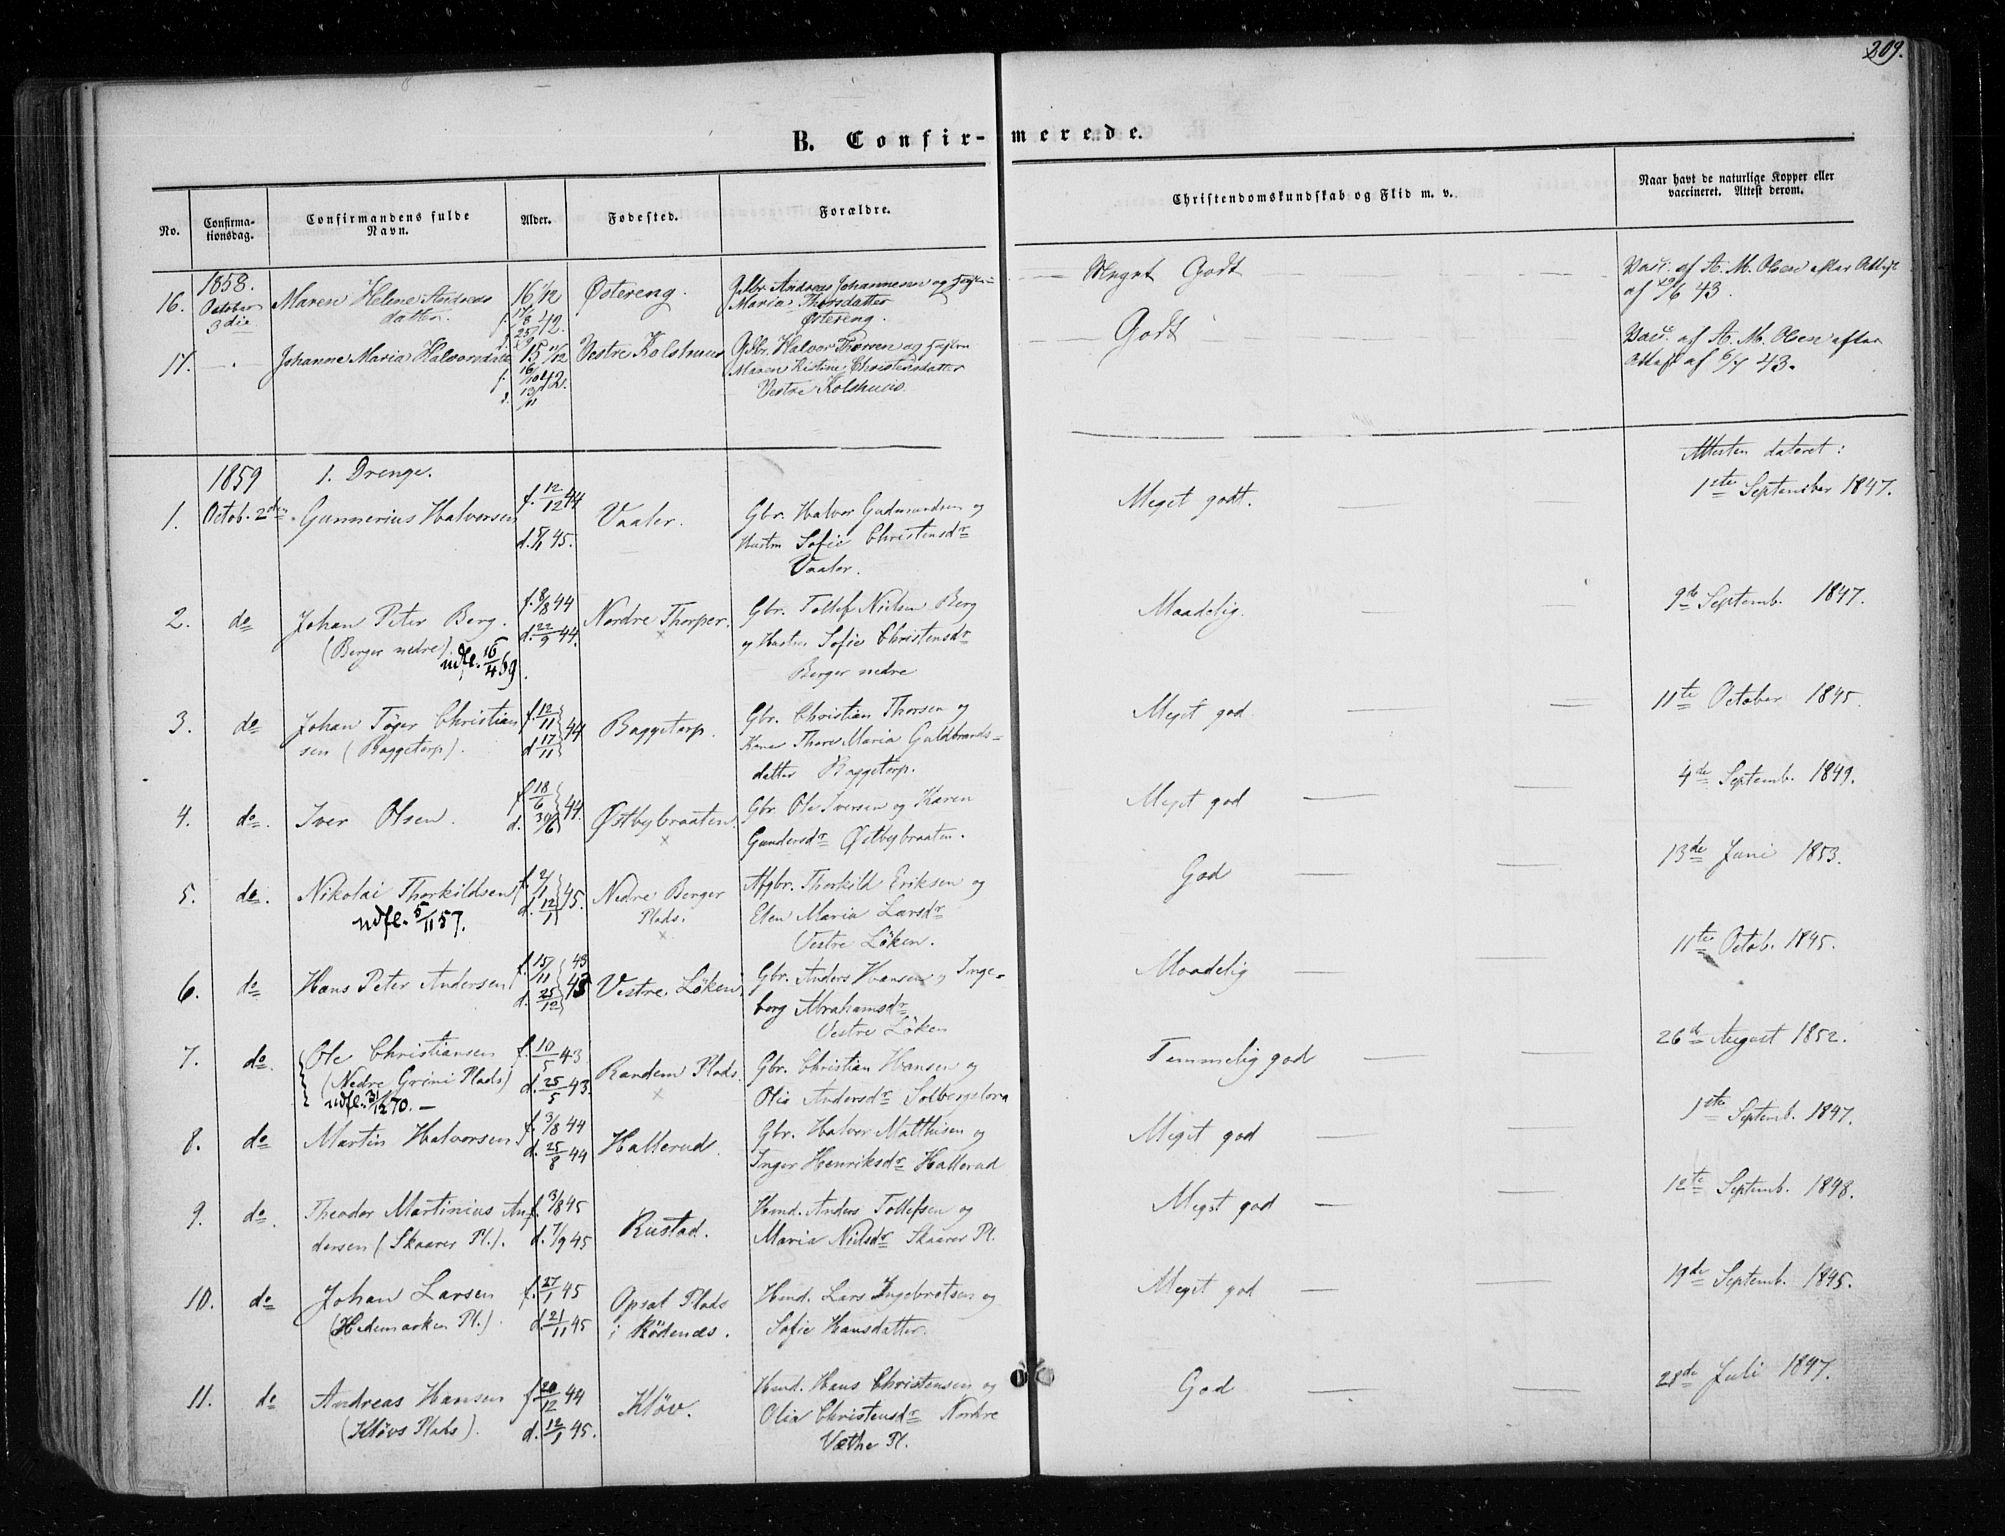 209.
B. Confirmerede.
No.
Confirmationsdag.
Confirmandens fulde Navn.
Alder.
Fødested.
Forældre.
Christendomskundskab og Flid m. v.
Naar havt de naturlige Kopper eller vaccineret. Attest derom.
1858.
16. October 3die Maren Helene Andreas
datter.
16 1/12
Østereng.
Gbr. Andreas Johannesen og
Maria Thorsdatter
Østereng.
Meget Godt
Vacc. af A. M. Olsen efter Attest
af 29/6 43.
17. Johanne Maria Halvorsdatter
15 11/12
f. 16/10 42.
Vestre Kolshuus
Gbr. Halvor Thoresen og
Maren Kistine Christensdatter
Vestre Kolshuus.
Godt
Vacc. af A. M. Olsen efter
Attest af 6/7 43.
1859
1. Drenge.
Attesten dateret:
1. Octob. 2den Gunnerius Halvorsen
f. 12/12 44
Vaaler.
Gbr. Halvor Gudmundsen og
Hustru Sofie Christensdr
Vaaler.
Meget godt.
1ste September 1847.
2. do Johan Peter Berg.
(Berger nedre).
udfl. 16/4 69.
f. 8/8 44
d. 22/9 44.
Nordre Thorper.
Gbr. Tollef Nielsen Berg
og Hustru Sofie Christensdr
Berger nedre
Maadelig.
9de Septemb. 1847.
3. do Johan Tøger Christian
sen (Baggetorp).
f. 12/11
d. 17/11
44
Baggetorp.
Gbr. Christian Thorsen og
Kone Thore Maria Guldbrands-
datter Baggetorp.
Meget god
11te October 1845.
4. do. Iver Olsen.
f. 18/6
d. 30/6
44.
Østbybraaten.
Gbr. Ole Iversen og Karen
Gundersdr Østbybraaten.
Meget god
4de Septemb. 1849.
5. do. Nikolai Thorkildsen
udfl. 5/11 57.
f. 2/1
d. 12/1
45.
Nedre Berger
Plads.
Afgbr. Thorkild Eriksen og
Elen Maria Larsdr
Vestre Löken.
God
13de Juni 1853.
6. do Hans Peter Andersen
f. 15/11
d. 25/12
43
43
Vestre Löken
Gbr. Anders Hansen og Inge-
borg Abrahamsdr
Vestre Löken
Maadelig
11te Octob. 1845.
7. do. Ole Christiansen
(Nedre Grini Plads)
udfl. 31/12 70.
f. 10/5 43
d. 25/5 43.
Randem Plads.
Gbr. Christian Hansen og
Olia Andersdr Solbergstora
Temmelig god
26de August 1852.
8. do Martin Halvorsen
f. 3/8 44
d. 25/8 44
Hallerud.
Gbr. Halvor Matthisen og
Inger Henriksdr Hallerud
Meget god
1ste Septemb. 1847.
9. do. Theodor Martinius An
dersen (Skaarer Pl.).
f. 3/8 45
d. 7/9 45
Rustad.
Hmd. Anders Tollefsen og
Maria Nielsdr Skaarer Pl.
Meget god
12te Septemb. 1848.
10. do Johan Larsen
(Hedemarken Pl.).
f. 27/1 45
d. 21/11 45
Opsal Plads
i Rödenæs.
Hmd. Lars Ingebretsen og
Sofie Hansdatter
Meget god
19de Septemb. 1845.
11. do Andreas Hansen
(Kløvs Plads).
f. 20/12 44
d. 12/1 45.
Kløv.
Hmd. Hans Christensen og
Olia Christensdr Nordre
Væthe Pl.
God
28de Juli 1847.